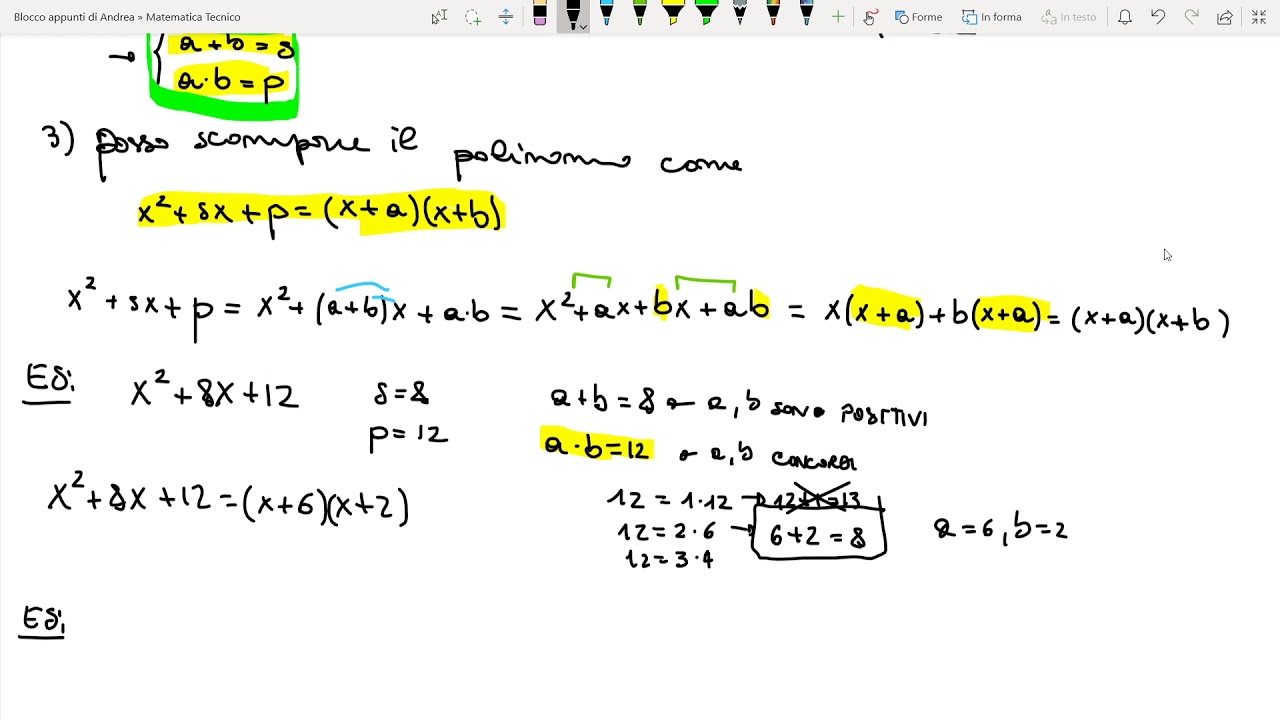 Blocco appunti di Andrea » Matematica Tecnico
Forme In forma In testo
→ { a + b = s
a·b = p
3) posso scomporre il polinomio come
x² + sx + p = (x+a)(x+b)
x² + sx + p = x² + (a+b)x + a·b = x² + ax + bx + ab = x(x+a) + b(x+a) = (x+a)(x+b)
ES: x² + 8x + 12 s = 8 a + b = 8 → a, b sono POSITIVI
p = 12 a · b = 12 → a, b CONCORDI
x² + 8x + 12 = (x+6)(x+2) 12 = 1·12 → 12+1=13
12 = 2·6 → 6+2 = 8 a = 6, b = 2
12 = 3·4
ES: